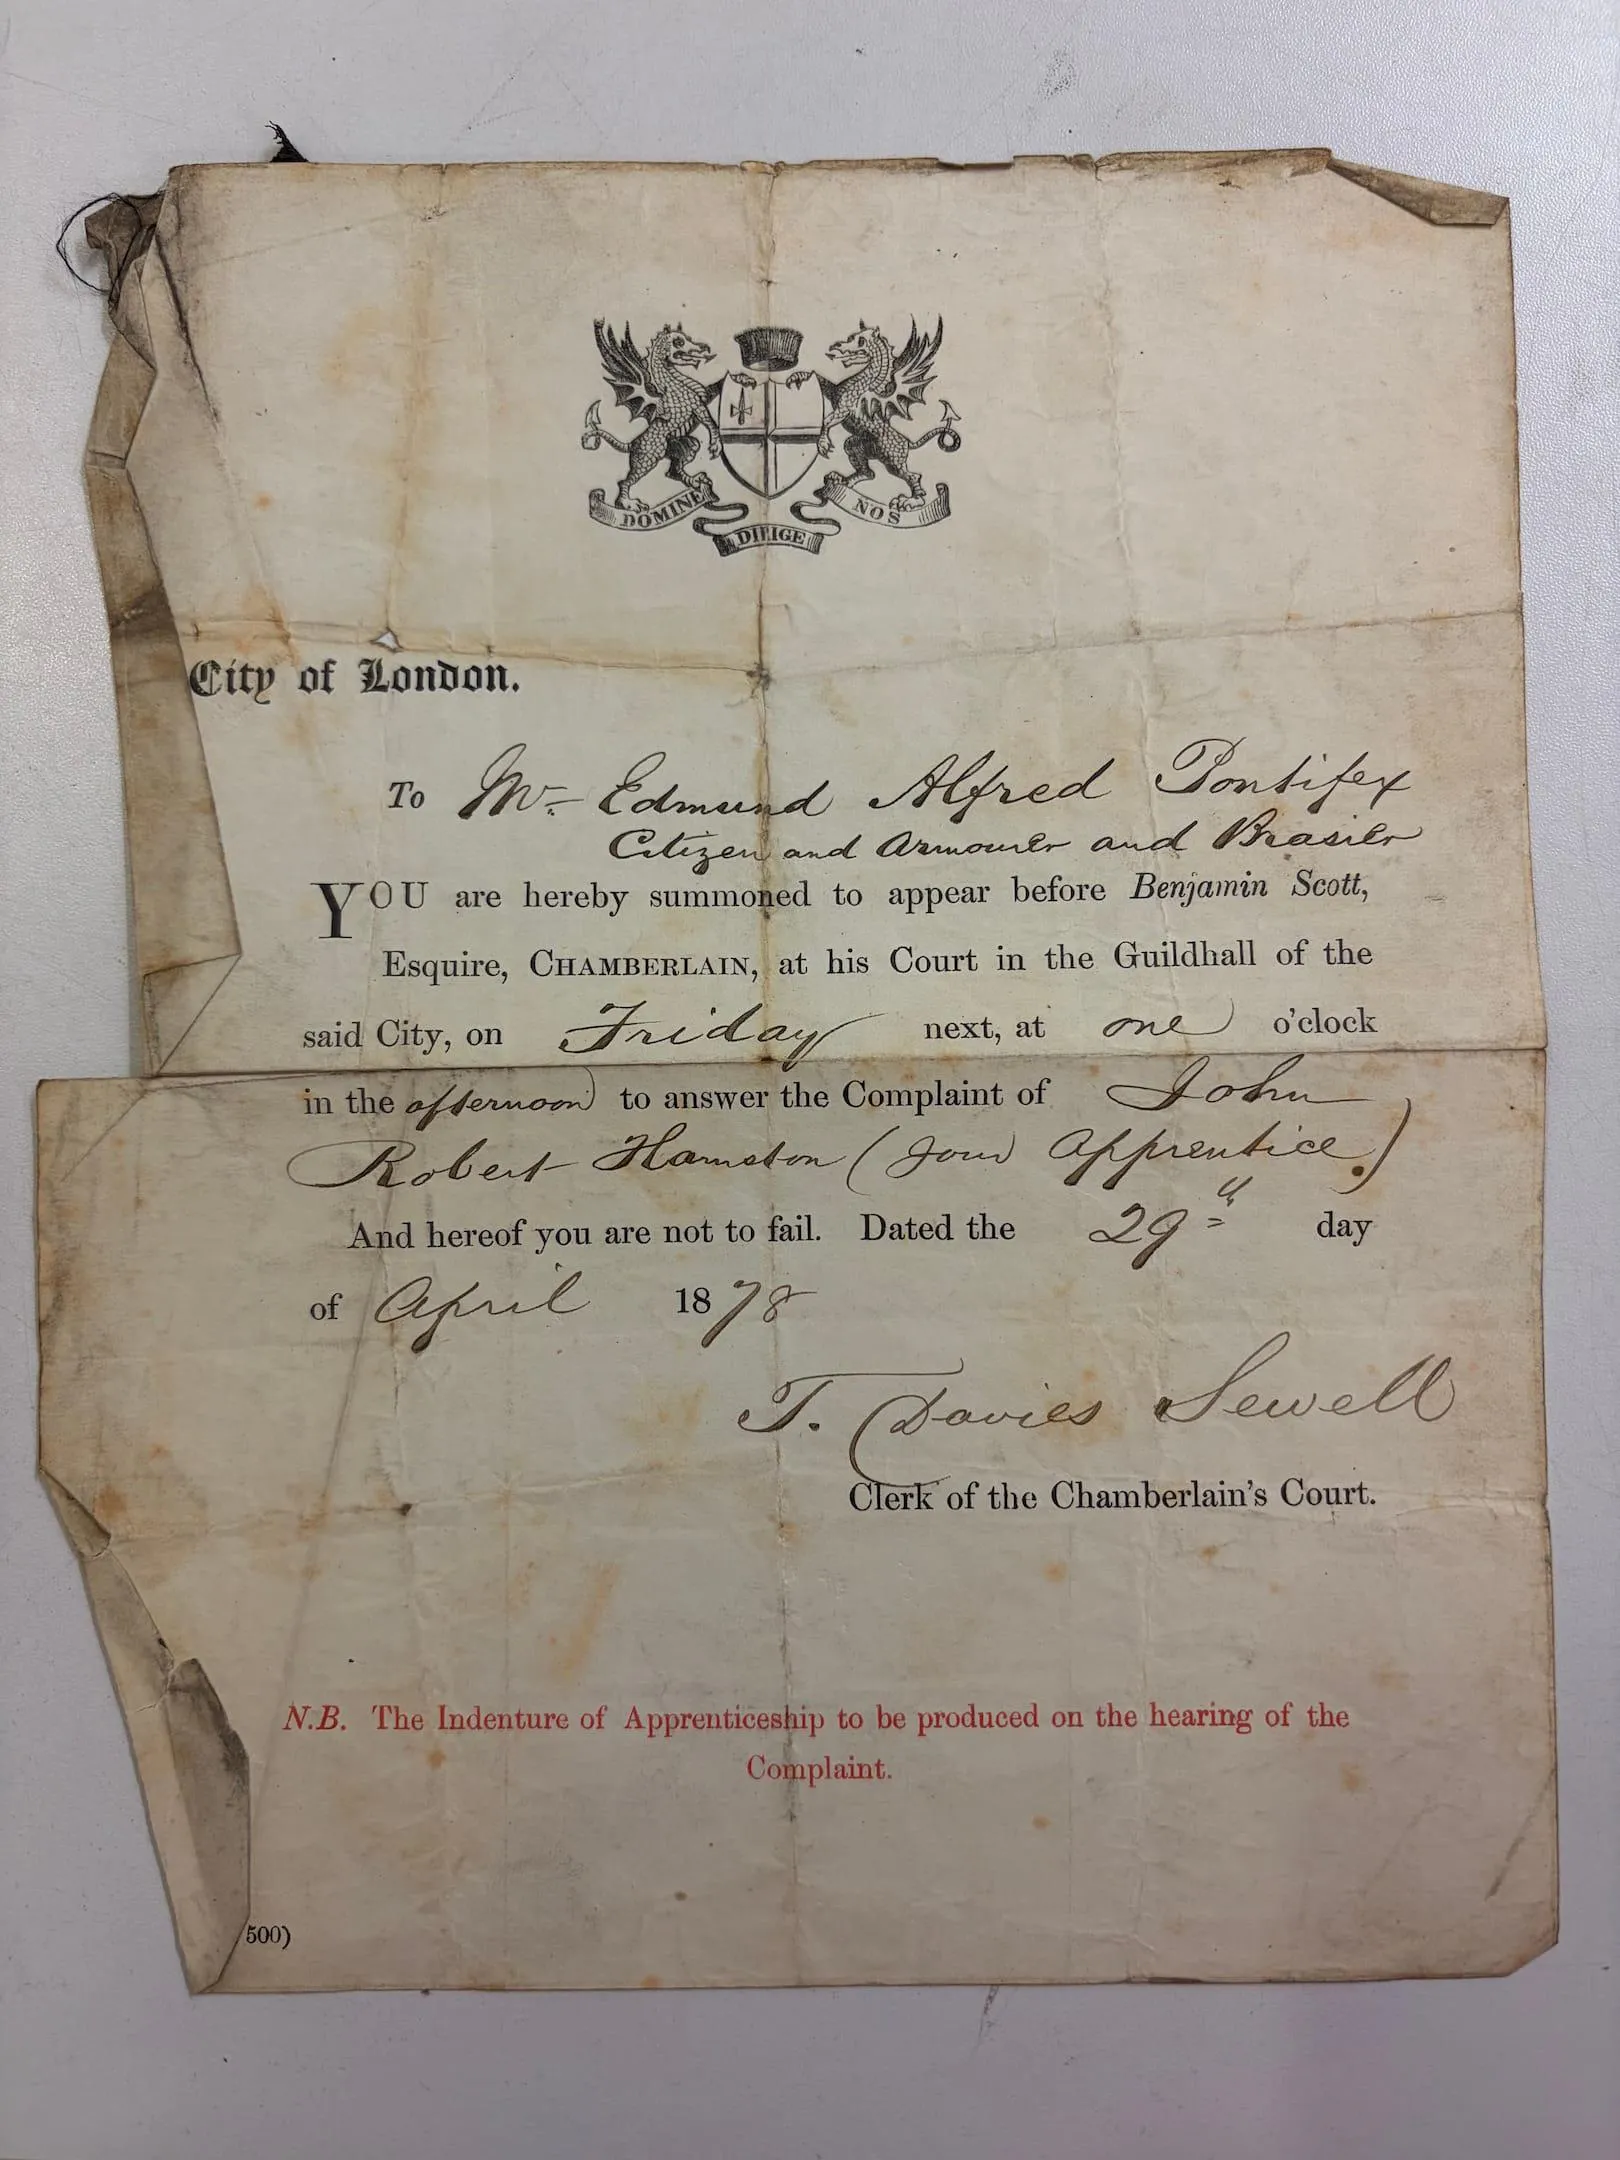 DOMINE DIRIGE NOS
City of London.
To Mr. Edmund Alfred Pontifex
Citizen and Armourer and Brasier
YOU are hereby summoned to appear before Benjamin Scott,
Esquire, CHAMBERLAIN, at his Court in the Guildhall of the
said City, on Friday next, at one o'clock
in the afternoon to answer the Complaint of John
Robert Hamston (your Apprentice.)
And hereof you are not to fail. Dated the 29th day
of April 1878
T. Davies Sewell
Clerk of the Chamberlain's Court.
N.B. The Indenture of Apprenticeship to be produced on the hearing of the
Complaint.
500)